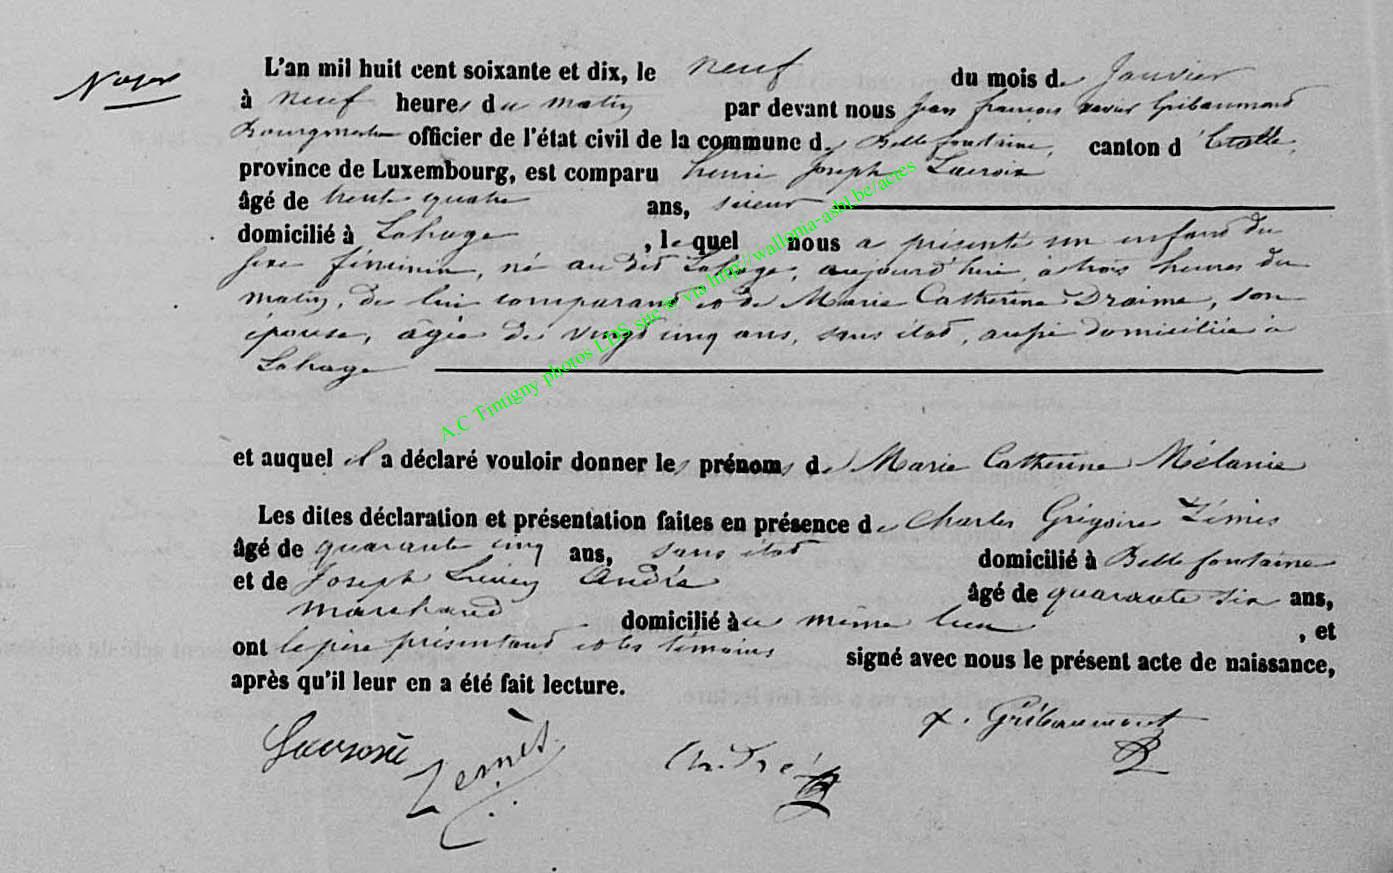 L'an mil huit cent soixante et dix, le neuf du mois de Janvier
à neuf heures du matin par devant nous Jean françois xavier Gribaumont
Bourgmestre officier de l'état civil de la commune de Bellefontaine, canton d'Etalle,
province de Luxembourg, est comparu henri Joseph Lacroix
âgé de trente quatre ans, scieur
domicilié à Lahage, lequel nous a présenté un enfant du
sexe féminin, né au dit Lahage, aujourd'hui, à trois heures du
matin, de lui comparant et de Marie Catherine Draime, son
épouse, âgée de vingt cinq ans, sans état, aussi domiciliée à
Lahage
A.C Tintigny photos LDS site © via http://wallonia-asbl.be/actes
et auquel il a déclaré vouloir donner les prénoms de Marie Catherine Mélanie
Les dites déclaration et présentation faites en présence de Charles Grégoire
âgé de quarante cinq ans, sans état domicilié à Bellefontaine
et de Joseph André âgé de quarante six ans,
marchand domicilié au même lieu, et
ont le père présentant et les témoins signé avec nous le présent acte de naissance,
après qu'il leur en a été fait lecture.
x. Gribaumont
André